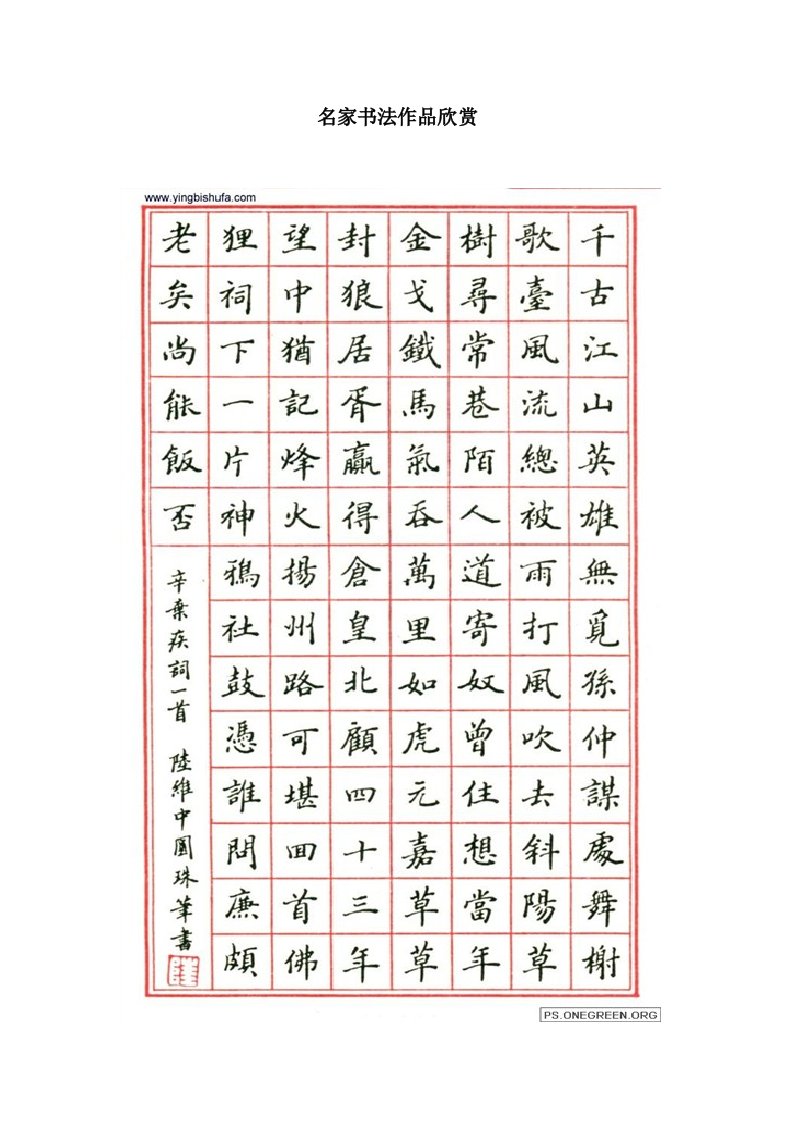 名家书法作品欣赏
www.yingbishufa.com
千古江山英雄無覓孫仲謀處舞榭
歌臺風流總被雨打風吹去斜陽草
樹尋常巷陌人道寄奴曾住想當年
金戈鐵馬氣吞萬里如虎元嘉草草
封狼居胥贏得倉皇北顧四十三年
望中猶記烽火揚州路可堪回首佛
狸祠下一片神鴉社鼓憑誰問廉頗
老矣尚能飯否
辛棄疾詞一首 陸維中圓珠筆書
PS.ONEGREEN.ORG